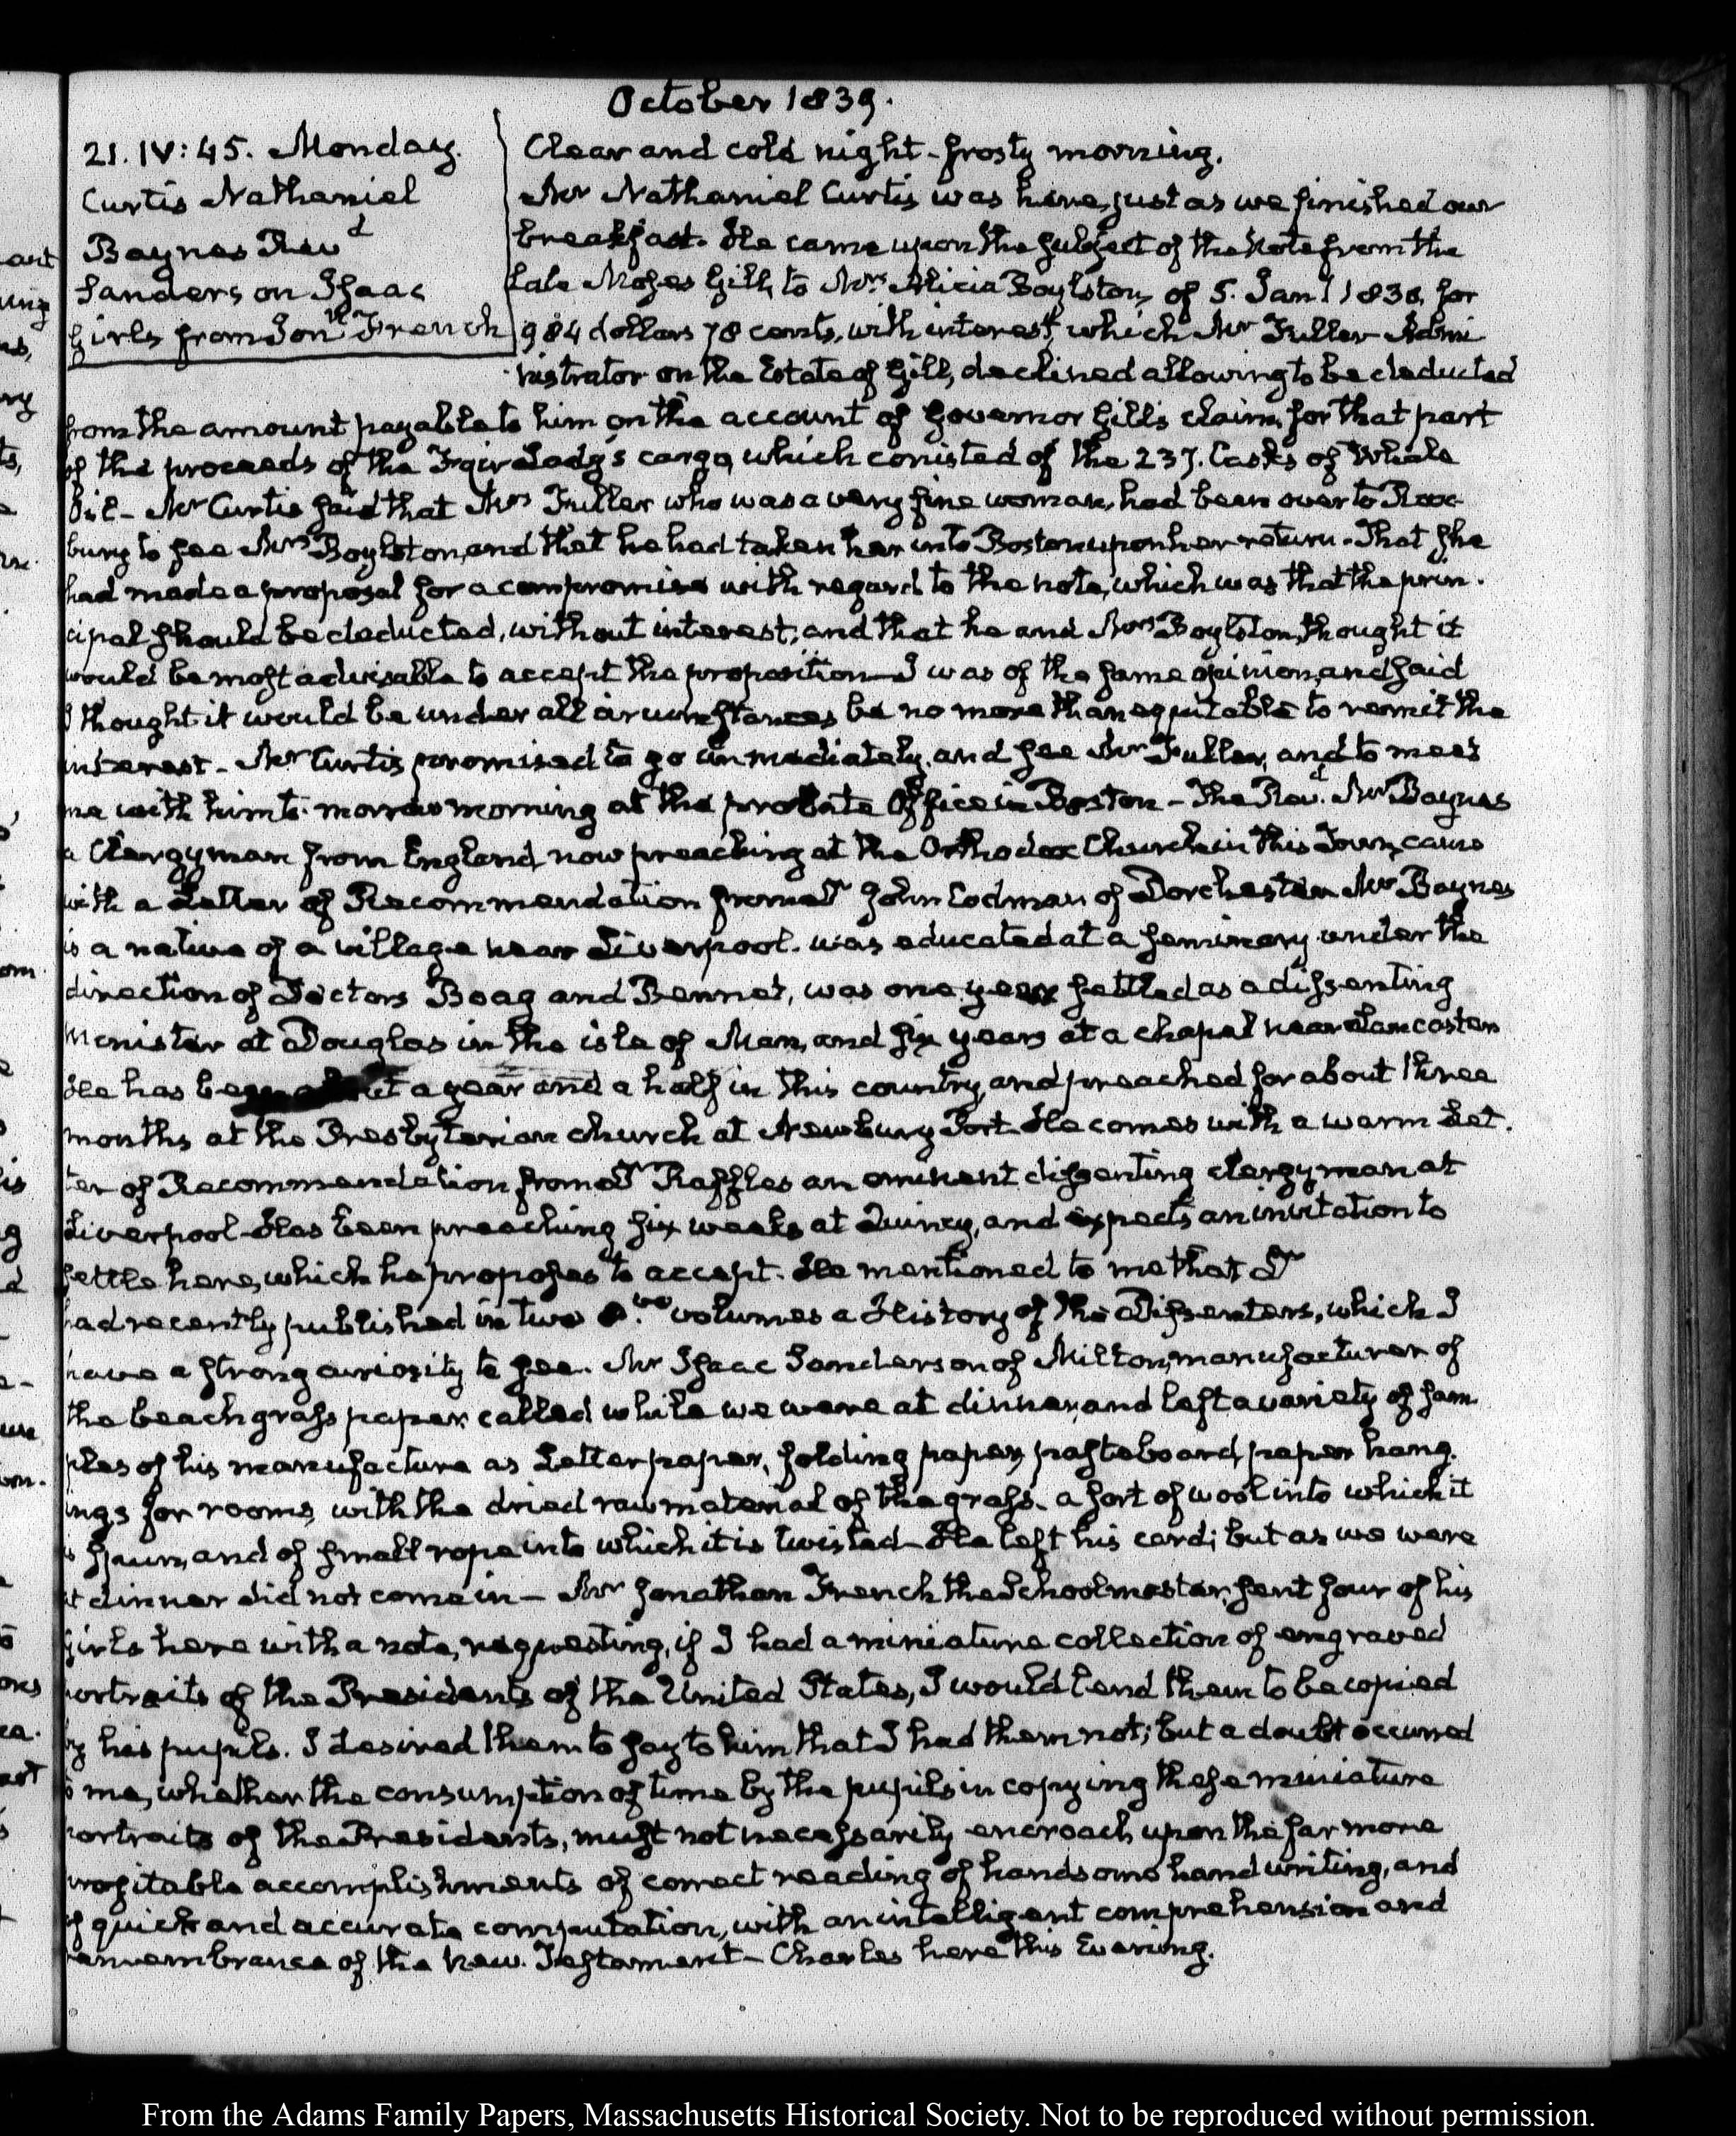 October 1839.
21. IV:45. Monday.
Curtis Nathaniel
Baynes Revd
Sanderson Isaac
Girls from Jonn French
Clear and cold night - frosty morning.
Mr Nathaniel Curtis was here, just as we finished our
breakfast. He came upon the subject of the Note from the
late Moses Gill, to Mrs Alicia Boylston, of 5. Jany 1830, for
984 dollars 78 cents, with interest, which Mr Fuller Admi-
nistrator on the Estate of Gill, declined allowing to be deducted
from the amount payable to him on the account of Governor Gill's claim, for that part
of the proceeds of the Fair Lady's cargo, which conisted of the 237. Casks of Whale
Oil - Mr Curtis said that Mrs Fuller who was a very fine woman, had been over to Rox-
bury to see Mrs Boylston, and that he had taken her into Boston upon her return - That she
had made a proposal for a compromise with regard to the note, which was that the prin-
cipal should be deducted, without interest, and that he and Mrs Boylston, thought it
would be most advisable to accept the proposition - I was of the same opinion, and said
I thought it would be under all circumstances be no more than equitable to remit the
interest - Mr Curtis promised to go immediately, and see Mr Fuller, and to meet
me with him to-morrow morning at the probate Office in Boston - The Revd. Mr Baynes
a Clergyman from England, now preaching at the Orthodox Church in this Town, came
with a Letter of Recommendation from Dr John Codman of Dorchester Mr Baynes
is a native of a village near Liverpool. was educated at a seminary under the
direction of Doctors Boag and Bennet, was one year settled as a dissenting
Minister at Douglas in the isle of Man, and six years at a chapel near Lancaster
He has been about a year and a half in this country, and preached for about three
months at the Presbyterian church at Newbury Port. He comes with a warm Let-
ter of Recommendation from Dr Raffles an eminent dissenting clergyman at
Liverpool - Has been preaching six weeks at Quincy, and expects an invitation to
settle here, which he proposes to accept. He mentioned to me that Dr
had recently published in two 8.vo volumes a History of the Dissenters, which I
have a strong curiosity to see. Mr Isaac Sanderson of Milton, manufacturer of
the beach grass paper called while we were at dinner, and left a variety of sam-
ples of his manufacture as Letter paper, folding paper, pasteboard, paper hang-
ings for rooms, with the dried raw material of the grass - a sort of wool into which it
is spun, and of small rope into which it is twisted - He left his card; but as we were
at dinner did not come in - Mr Jonathan French the Schoolmaster, sent four of his
girls here with a note, requesting, if I had a miniature collection of engraved
portraits of the Presidents of the United States, I would lend them to be copied
by his pupils. I desired them to say to him that I had them not; but a doubt occurred
to me, whether the consumption of time by the pupils in copying these miniature
portraits of the Presidents, must not necessarily encroach upon the far more
profitable accomplishments of correct reading of handsome hand writing, and
of quick and accurate computation, with an intelligent comprehension and
remembrance of the New. Testament - Charles here this Evening.
From the Adams Family Papers, Massachusetts Historical Society. Not to be reproduced without permission.